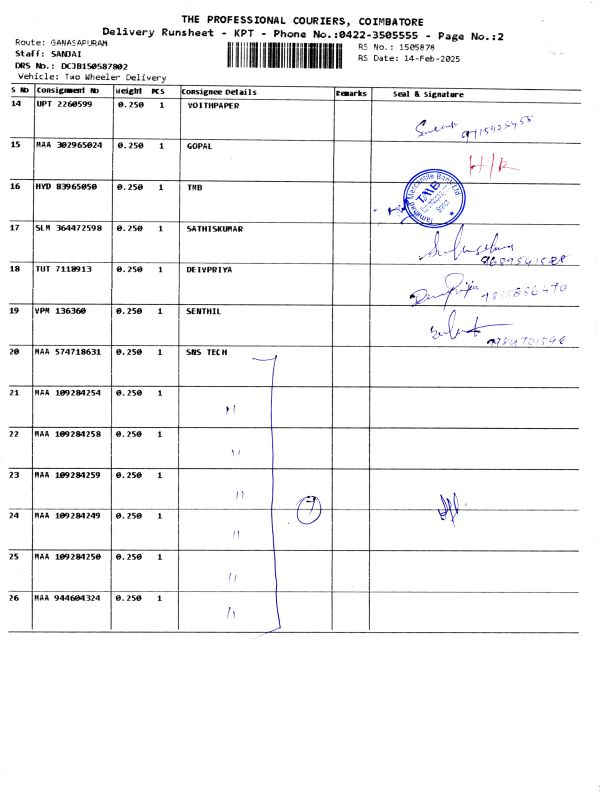 THE PROFESSIONAL COURIERS, COIMBATORE
Delivery Runsheet - KPT - Phone No.:0422-3505555 - Page No.:2
Route: GANASAPURAM
RS No.: 1505878
Staff: SANDAI
RS Date: 14-Feb-2025
DRS No.: DCJB150587802
Vehicle: Two Wheeler Delivery
S No Consignment No Weight PCS Consignee Details Remarks Seal & Signature
14 UPT 2260599 0.250 1 VOITHPAPER
15 MAA 302965024 0.250 1 GOPAL
H/R
16 HYD 83965050 0.250 1 TMB
Tamilnad Mercantile Bank Ltd.
TMB
17 SLM 364472598 0.250 1 SATHISKUMAR
18 TUT 7118913 0.250 1 DEIVPRIYA
19 VPM 136360 0.250 1 SENTHIL
20 MAA 574718631 0.250 1 SNS TECH
21 MAA 109284254 0.250 1 "
22 MAA 109284258 0.250 1 "
23 MAA 109284259 0.250 1 "
7
24 MAA 109284249 0.250 1 "
25 MAA 109284250 0.250 1 "
26 MAA 944604324 0.250 1 "